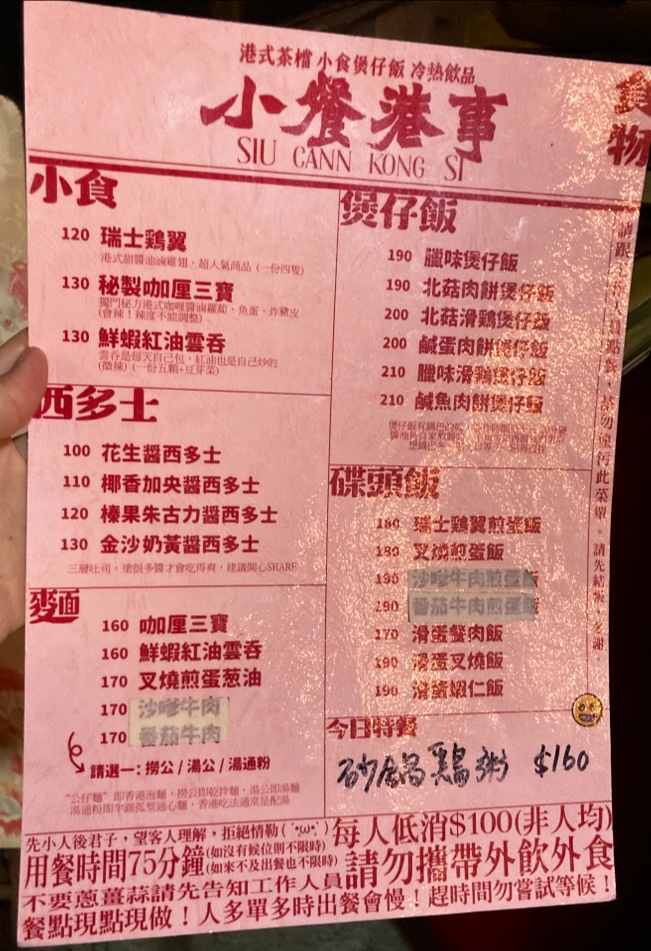 港式茶檔 小食煲仔飯 冷熱飲品
小餐港事
SIU CANN KONG SI
食物
小食
120 瑞士鷄翼
港式甜醬油滷雞翅,超人氣商品(一份四隻)
130 秘製咖厘三寶
獨門秘方港式咖哩醬滷蘿蔔、魚蛋、炸豬皮
(會辣!辣度不能調整)
130 鮮蝦紅油雲吞
雲吞是每天自己包,紅油也是自己炒的
(微辣)(一份五顆+豆芽菜)
西多士
100 花生醬西多士
110 椰香加央醬西多士
120 榛果朱古力醬西多士
130 金沙奶黃醬西多士
三層吐司,塗很多醬才會吃得爽,建議開心SHARE
麥面
160 咖厘三寶
160 鮮蝦紅油雲吞
170 叉燒煎蛋葱油
170 沙嗲牛肉
170 番茄牛肉
請選一:撈公/湯公/湯通粉
"公仔麵"即香港泡麵,撈公即乾拌麵,湯公即湯麵
湯通粉即半圓弧型通心麵,香港吃法通常是配湯
煲仔飯
190 臘味煲仔飯
190 北菇肉餅煲仔飯
200 北菇滑鷄煲仔飯
200 鹹蛋肉餅煲仔飯
210 臘味滑鷄煲仔飯
210 鹹魚肉餅煲仔飯
碟頭飯
180 瑞士鷄翼煎蛋飯
180 叉燒煎蛋飯
190 沙嗲牛肉煎蛋飯
190 番茄牛肉煎蛋飯
170 滑蛋餐肉飯
190 滑蛋叉燒飯
190 滑蛋蝦仁飯
今日特餐
砂鍋鷄粥 $160
請勿塗污此菜單。請先結帳,多謝。
先小人後君子,望客人理解,拒絕情勒(´•ω•`)
每人低消$100(非人均)
用餐時間75分鐘(如沒有候位則不限時)
(如來不及出餐也不限時)
請勿攜帶外飲外食
不要蔥薑蒜請先告知工作人員
餐點現點現做!人多單多時出餐會慢!趕時間勿嘗試等候!